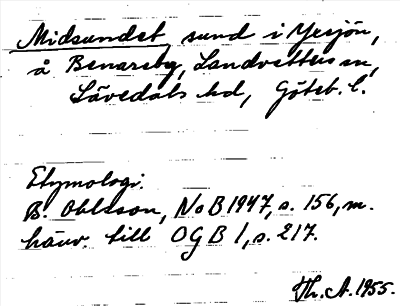 Midsundet, sund i Yxsjön,
å Benareby, Landvetters sn,
Sävedals hd, Göteb. l.
Etymologi.
B. Ohlsson, NoB 1947, s. 156, m.
hänv. till OGB 1, s. 217.
Th. A. 1955.